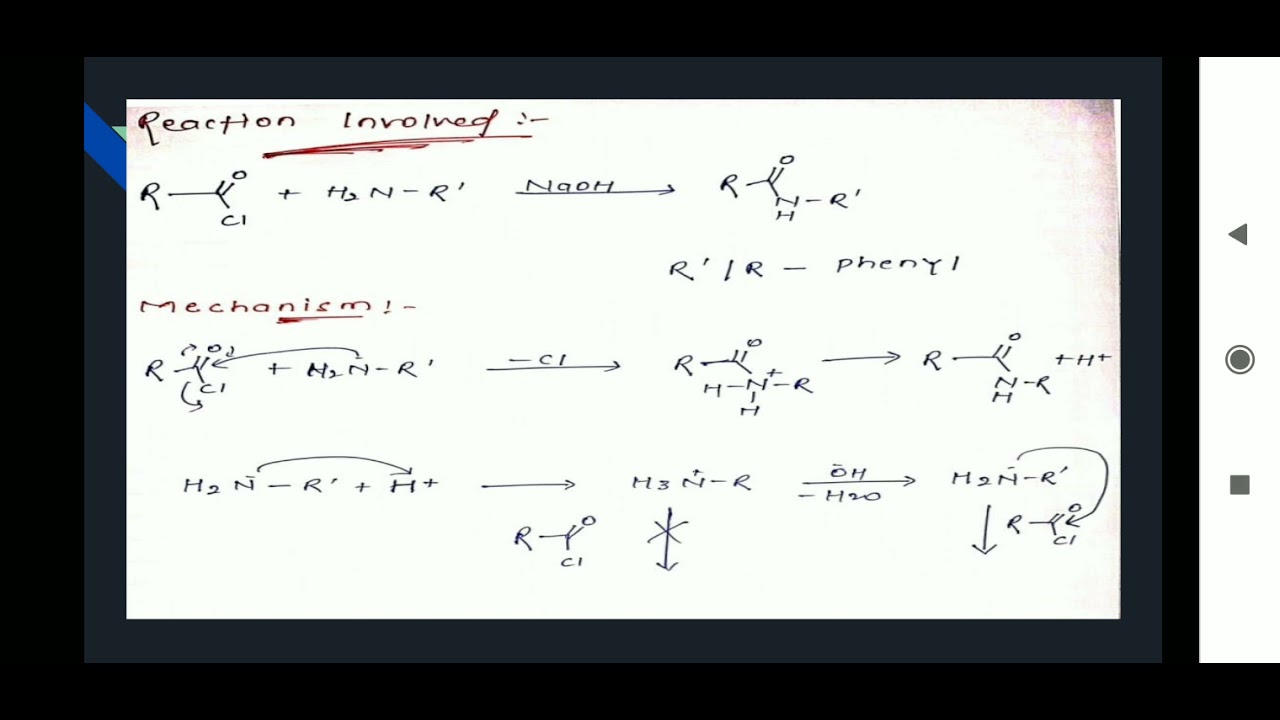 Reaction Involved :-
R O Cl + H2N-R' NaOH → R O N H -R'
R'/R - Phenyl
Mechanism :-
R O Cl + H2N-R' -Cl → R O H-N+-R H → R O N-R H + H+
H2N-R' + H+ → H3N+-R ŌH -H2O → H2N-R'
R O Cl R O Cl